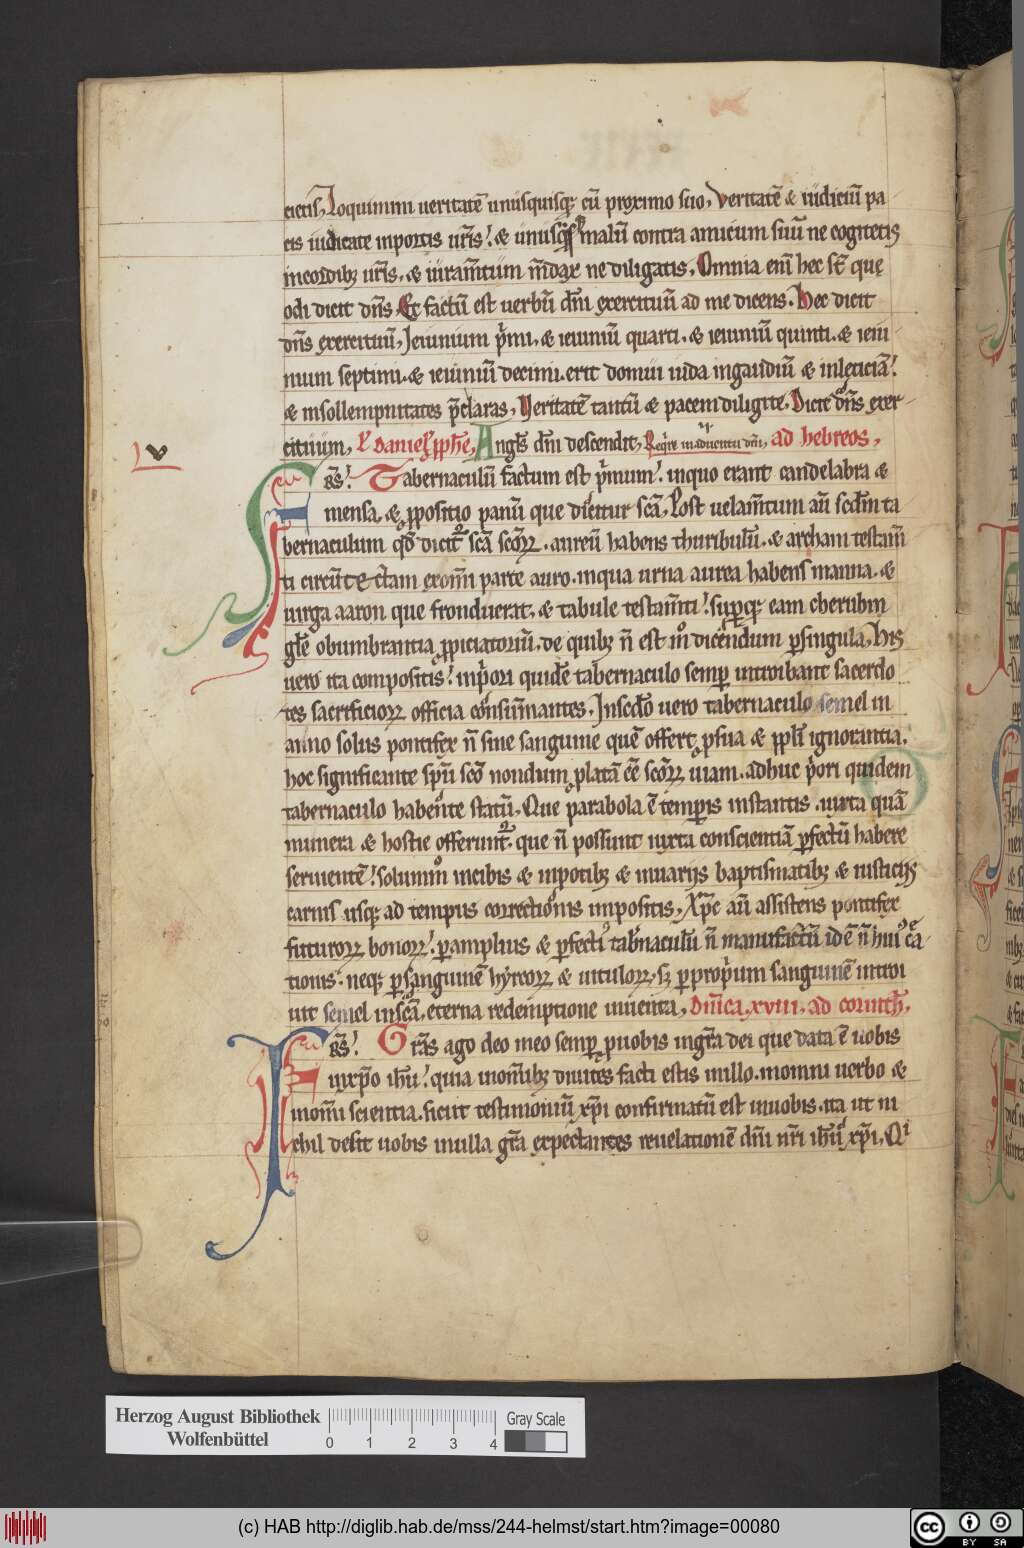 cietis, Loquimini ueritatē unusquisqꝫ cū proximo suo, Veritatē & iudiciū pa
cis iudicate inportis ur̄is. & unusq̄sqꝫ malū contra amicum suū ne cogitetis
incordibꝫ ur̄is, & iuram̄tum m̄dax ne diligatis, Omnia eni hec st̄ que
odi dicit dn̄s, Et factū est uerbū dn̄i exercituū ad me dicens. Hec dicit
dn̄s exercituū, Ieiunium p̄mi, & ieiuniū quarti. & ieiuniū quinti. & ieiu
nium septimi. & ieiuniū decimi. erit domui iuda ingaudiū & inleticiā.
& insollempnitates p̄claras, Veritatē tantū & pacem diligite. Dicit dn̄s exer
cituum, L' daniel' pph̄e, Angl's dn̄i descendit, Reqr̄e in aduentu dn̄i, ad hebreos,
v
Fr̄s. Tabernaculū factum est p̄mum. inquo erant candelabra &
mensa, & ꝓpositio panū que dicitur sc̄a, Post uelam̄tum aū sc̄dm ta
bernaculum qd̄ dicit᷑ sc̄a sc̄oꝝ. aureū habens thuribulū. & archam testam̄
ti circūtectam exom̄i parte auro. inqua urna aurea habens manna. &
uirga aaron que fronduerat, & tabule testam̄ti. suꝑqꝫ eam cherubin
gl̄e obumbrantia ꝓpiciatoriū, de quibꝫ n̄ est m̊ dicendum ꝑsingula, His
uero ita compositis. inp̄ori quidē tabernaculo semꝑ introibant sacerdo
tes sacrificioꝝ officia consūmantes, Insecdo uero tabernaculo semel in
anno solus pontifex n̄ sine sanguine quē offert ꝓsua & ppl̄i ignorantia,
hoc significante spū sc̄o nondum ꝓlatā ēē sc̄oꝝ uiam. adhuc p̄ori quidem
tabernaculo habente statū, Que parabola ē temꝑis instantis. iuxta quā
munera & hostie offerunt᷑. que n̄ possunt iuxta conscientiā ꝑfectū habere
seruientē. solummo incibis & inpotibꝫ & inuariis baptismatibꝫ & iusticiis
carnis usqꝫ ad tempus correctionis impositis, Xp̄c aū assistens pontifex
futuroꝝ bonoꝝ. ꝑamplius & ꝑfecti tab̄naculū n̄ manufactū idē n̄ hui᷒ c̄a
tionis. neqꝫ ꝑsanguinē hyrcoꝝ & uituloꝝ, sꝫ ꝑpropriū sanguinē introi
uit semel insc̄a, eterna redemptione inuenta, Dn̄ica, xviii, ad corinth̄,
Fr̄s. Gr̄as ago deo meo semꝑ ꝓuobis ingr̄a dei que data ē uobis
inxp̄o ih̄u. quia inom̄ibꝫ diuites facti estis inillo. inomni uerbo &
inom̄i scientia. sicut testimoniū xp̄i confirmatū est inuobis. ita ut ni
chil desit uobis inulla gr̄a expectantes reuelationē dn̄i nr̄i ih̄u xp̄i, Qi
Herzog August Bibliothek
Wolfenbüttel
0 1 2 3 4
Gray Scale
(c) HAB http://diglib.hab.de/mss/244-helmst/start.htm?image=00080
cc BY SA